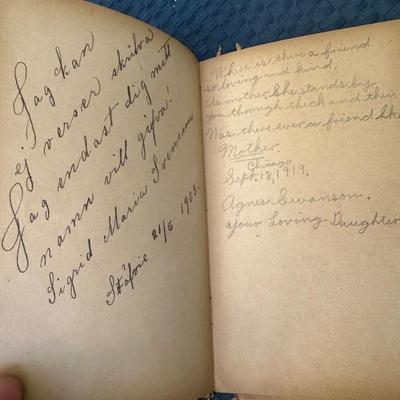 Jag kan
ej verser skrifva
Jag endast dig mitt
namn vill gifva!
Sigrid Maria
21/6 1903.
Where is there a friend
so loving and kind,
As mother. She stands by
you through thick and thin
Was there ever a friend like
Mother.
Chicago
Sept. 18, 1919.
Agnes Swanson.
Your Loving Daughter